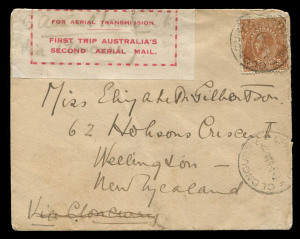 FOR AERIAL TRANSMISSION.
FIRST TRIP AUSTRALIA'S
SECOND AERIAL MAIL.
Miss Elizabeth Gilbertson,
62 Hobsons Crescent
Wellington —
New Zealand
Via Cloncurry